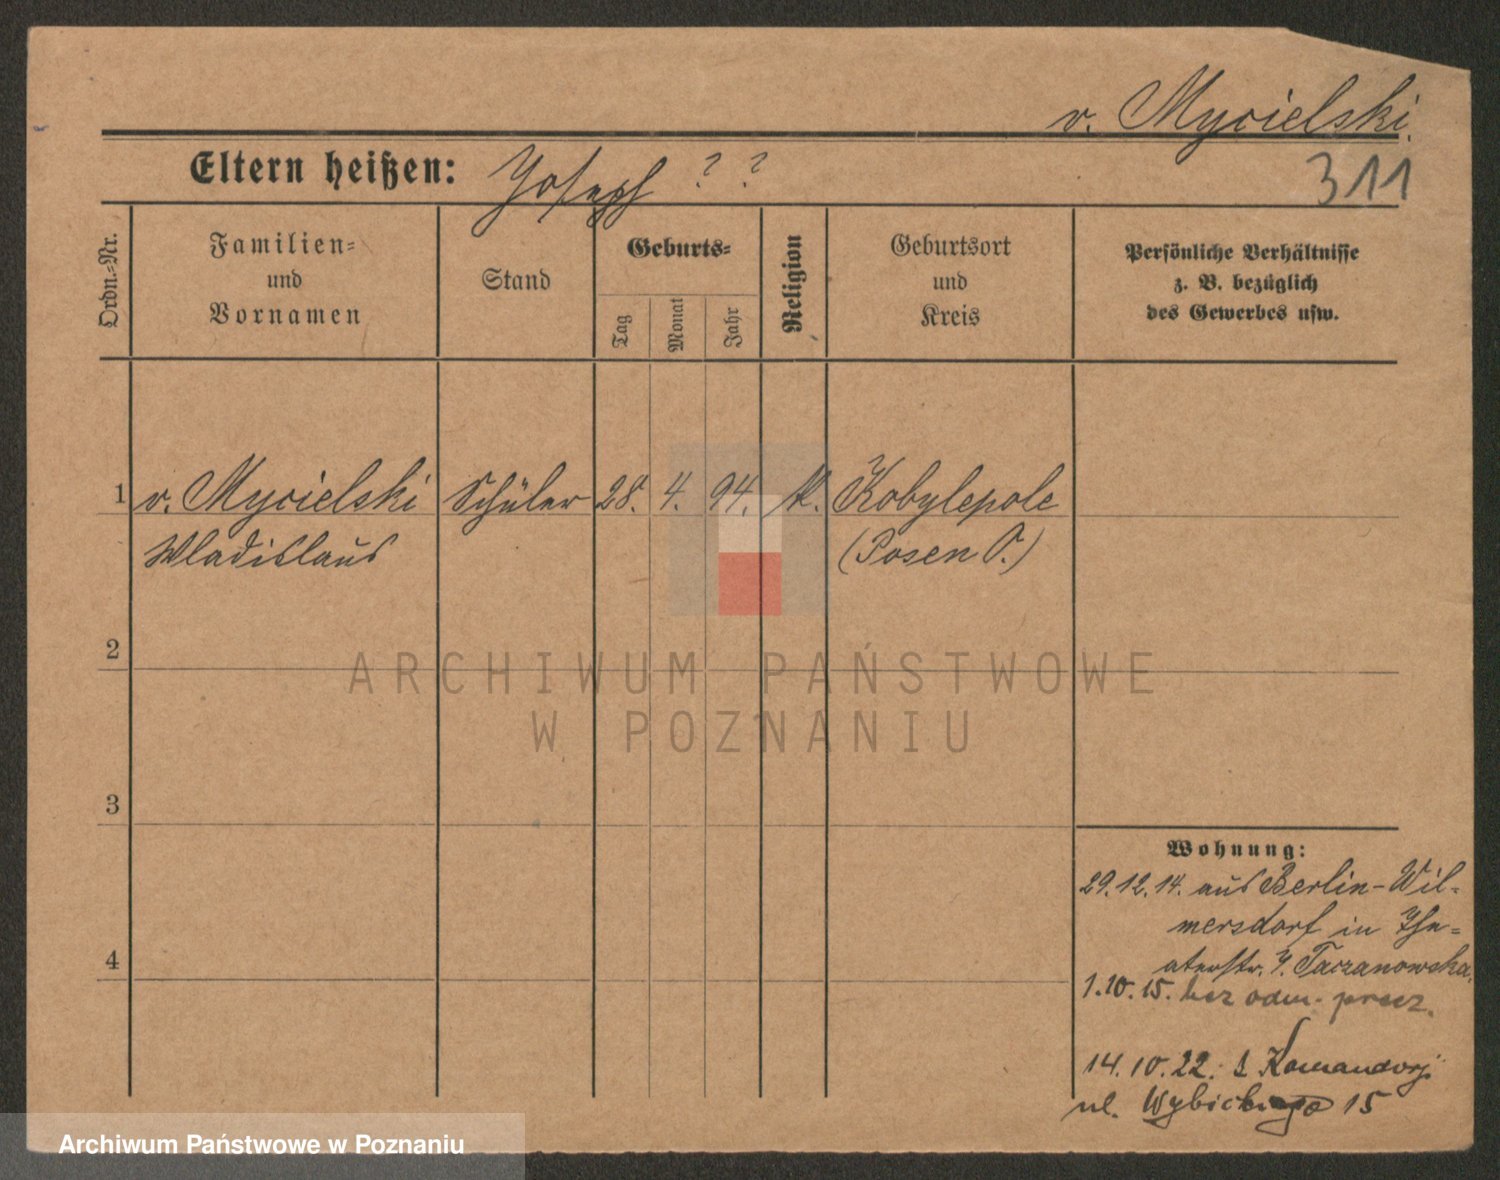 v. Mycielski.
Eltern heißen: Joseph ? ?
311
Ordn.-Nr.
Familien-
und
Vornamen
Stand
Geburts-
Tag
Monat
Jahr
Religion
Geburtsort
und
Kreis
Persönliche Verhältnisse
z. B. bezüglich
des Gewerbes usw.
1 v. Mycielski Schüler 28. 4. 94. k. Kobylepole
Wladislaus (Posen O.)
2
ARCHIWUM PAŃSTWOWE
W POZNANIU
3
Wohnung:
29.12.14. aus Berlin-Wil-
mersdorf in The-
aterstr. Taczanowska
4
1.10.15. bez odm. przez.
14.10.22. Komandorj
ul. Wybickiego 15
Archiwum Państwowe w Poznaniu